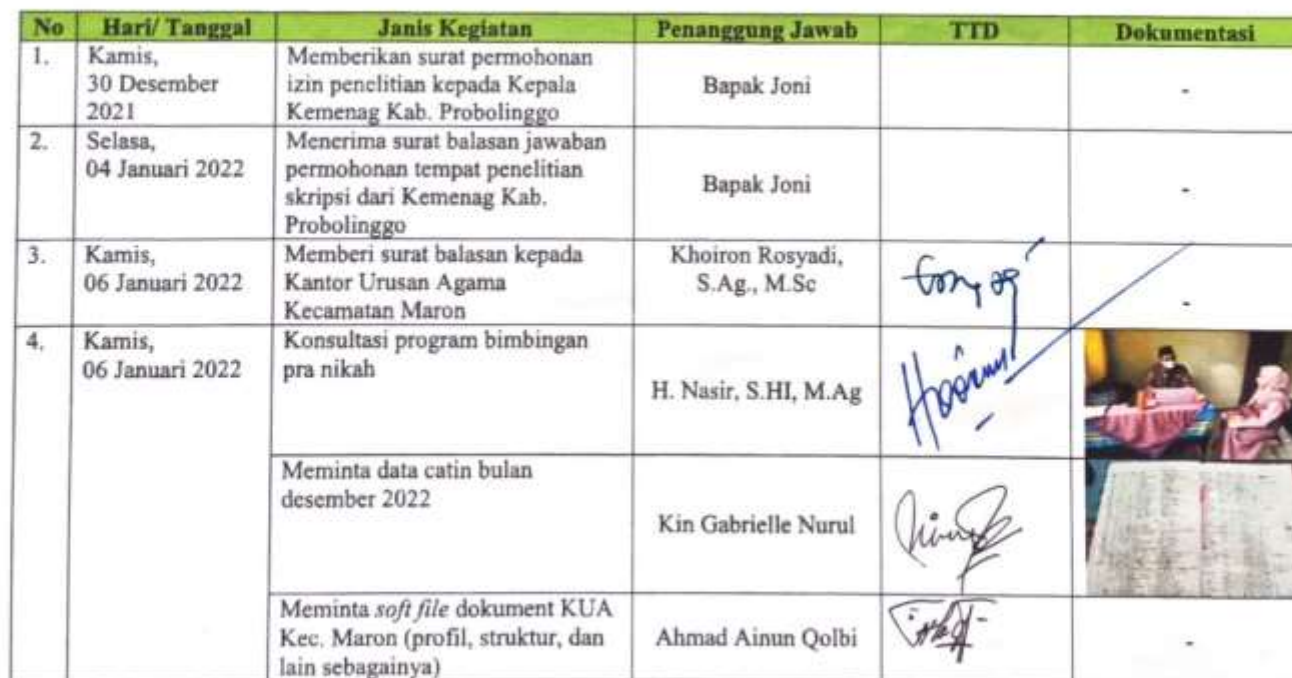 No Hari/ Tanggal Janis Kegiatan Penanggung Jawab TTD Dokumentasi
1. Kamis,
30 Desember
2021
Memberikan surat permohonan
izin penelitian kepada Kepala
Kemenag Kab. Probolinggo
Bapak Joni
-
2. Selasa,
04 Januari 2022
Menerima surat balasan jawaban
permohonan tempat penelitian
skripsi dari Kemenag Kab.
Probolinggo
Bapak Joni
-
3. Kamis,
06 Januari 2022
Memberi surat balasan kepada
Kantor Urusan Agama
Kecamatan Maron
Khoiron Rosyadi,
S.Ag., M.Sc
-
4. Kamis,
06 Januari 2022
Konsultasi program bimbingan
pra nikah
H. Nasir, S.HI, M.Ag
Meminta data catin bulan
desember 2022
Kin Gabrielle Nurul
Meminta soft file dokument KUA
Kec. Maron (profil, struktur, dan
lain sebagainya)
Ahmad Ainun Qolbi
-